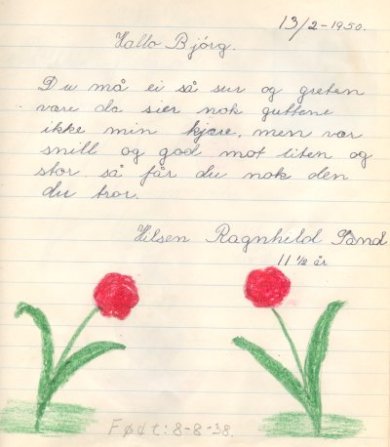 13/2-1950.
Hallo Bjørg.
Du må ei så sur og greten
være da sier nok guttene
ikke min kjære, men vær
snill og god mot liten og
stor så får du nok den
du tror.
Hilsen Ragnhild Sand
11 1/2 år
Født: 8-8-38.